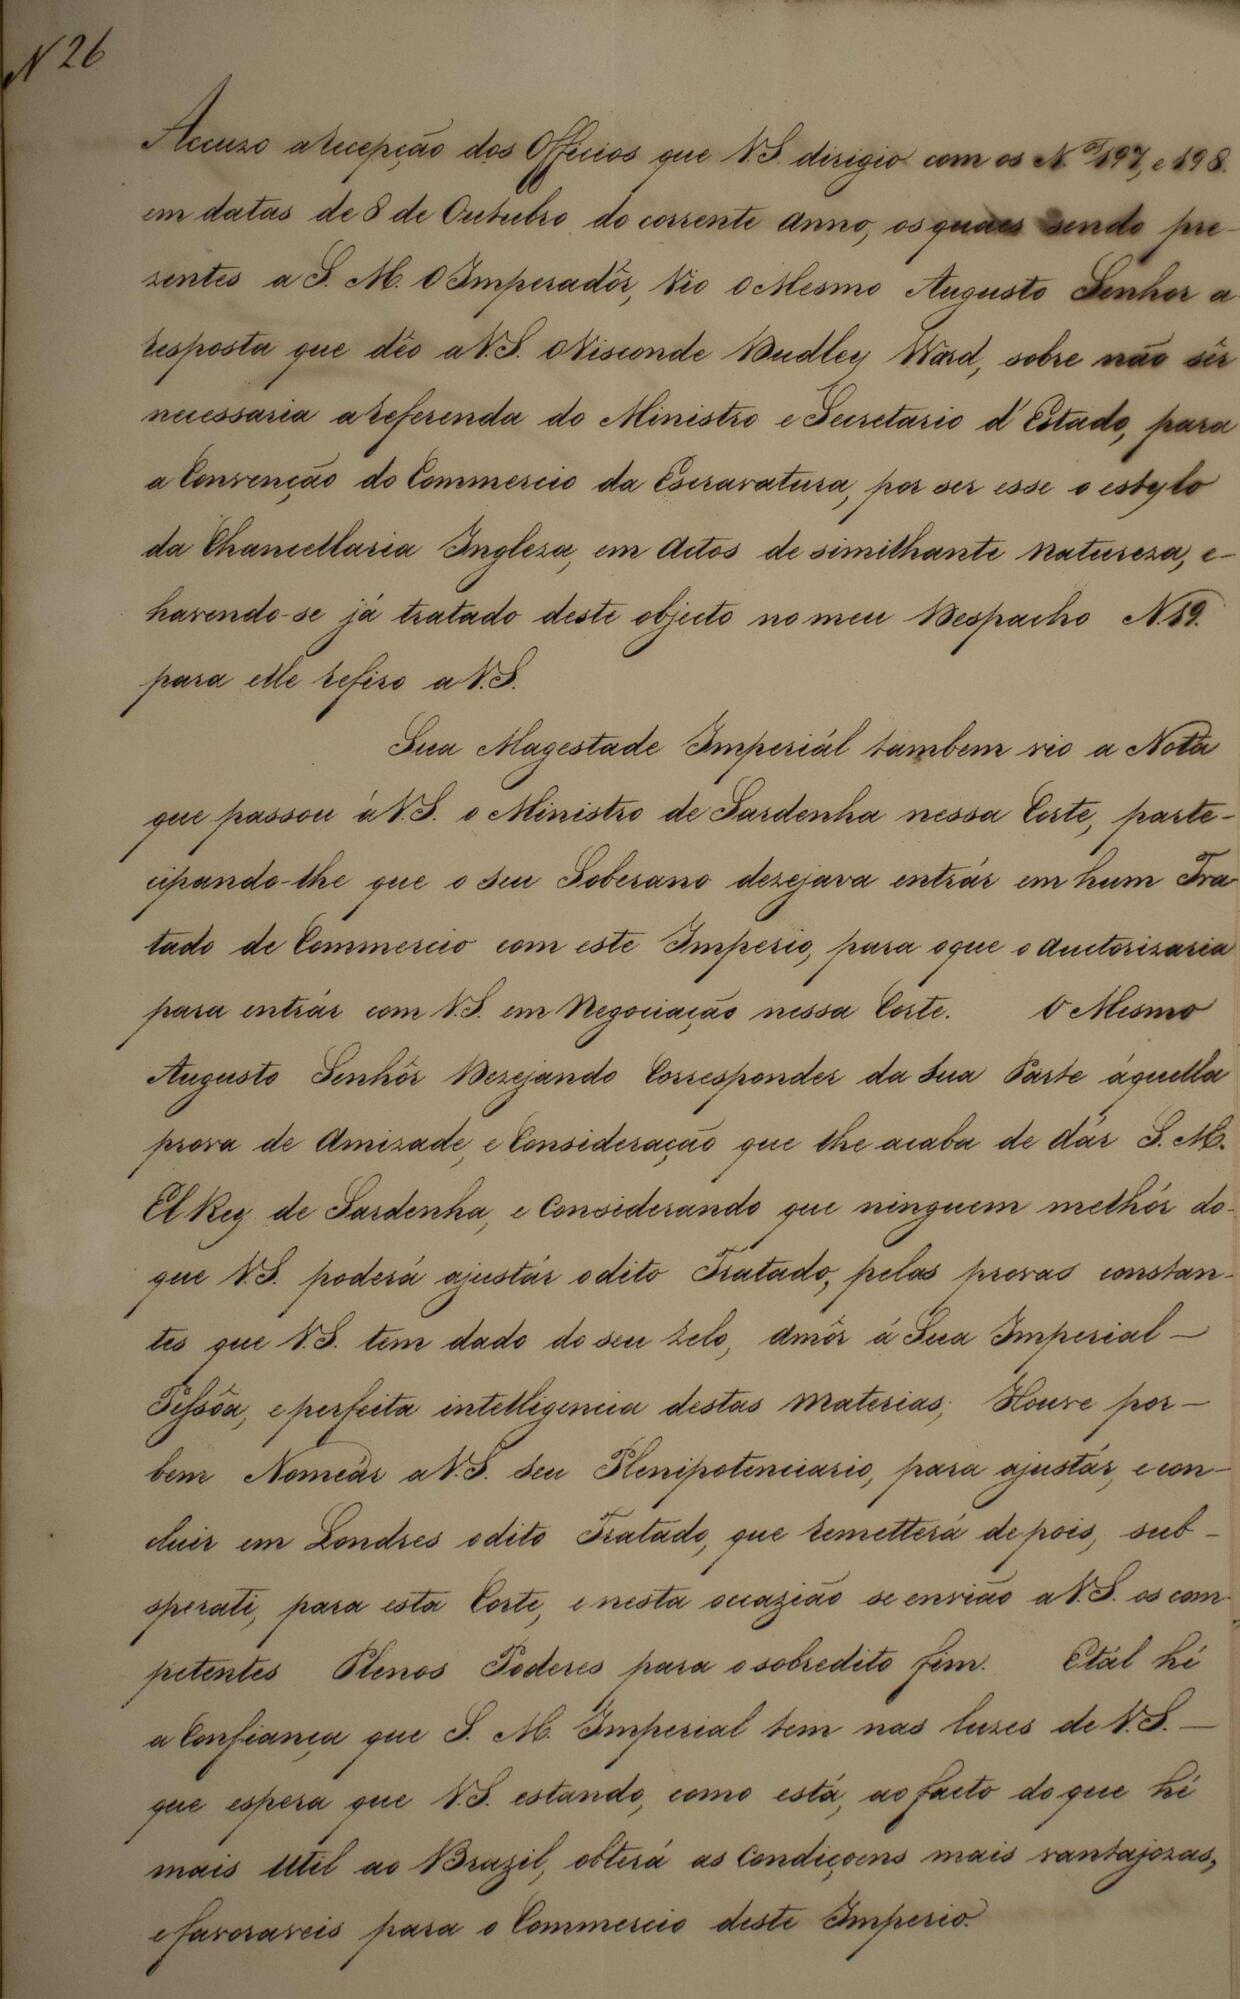 N 26
Accuzo a recepção dos Officios que V.S. dirigio com os N.os 197, e 198.
em datas de 8 de Outubro do corrente anno, os quaes sendo pre-
zentes a S. M. O Imperadôr, Vio o Mesmo Augusto Senhor a
resposta que dêo a V.S. o Visconde Dudley Ward, sobre não sêr
necessaria a referenda do Ministro e Secretario d'Estado, para
a Convenção do Commercio da Escravatura, por ser esse o estylo
da Chancellaria Ingleza, em Actos de similhante natureza, e-
havendo-se já tratado deste objecto no meu Despacho N.19.
para elle refiro a V.S.
Sua Magestade Imperiál tambem vio a Nota
que passou á V.S. o Ministro de Sardenha nessa Corte, parte-
cipando-lhe que o seu Soberano dezejava entrár em hum Tra-
tado de Commercio com este Imperio, para o que o auctorizaria
para entrár com V.S. em Negociação nessa Corte. O Mesmo
Augusto Senhôr Dezejando Corresponder da Sua Parte áquella
prova de Amizade, e Consideração que lhe acaba de dár S. M.
El Rey de Sardenha, e Considerando que ninguem melhór do-
que V.S. poderá ajustár o dito Tratado, pelas provas constan-
tes que V.S. tem dado do seu zelo, amôr á Sua Imperial -
Pessôa, e perfeita intelligencia destas materias; Houve por -
bem Nomeár a V.S. seu Plenipotenciario, para ajustár, e con-
cluir em Londres o dito Tratado, que remetterá depois, sub -
sperati, para esta Corte, e nesta occazião se envião a V.S. os com-
petentes Plenos Poderes para o sobredito fim. E tál hé
a Confiança que S. M. Imperial tem nas luzes de V.S. -
que espera que V.S. estando, como está, ao facto do que hé
mais util ao Brazil, obterá as Condiçoens mais vantajozas,
e favoraveis para o Commercio deste Imperio.